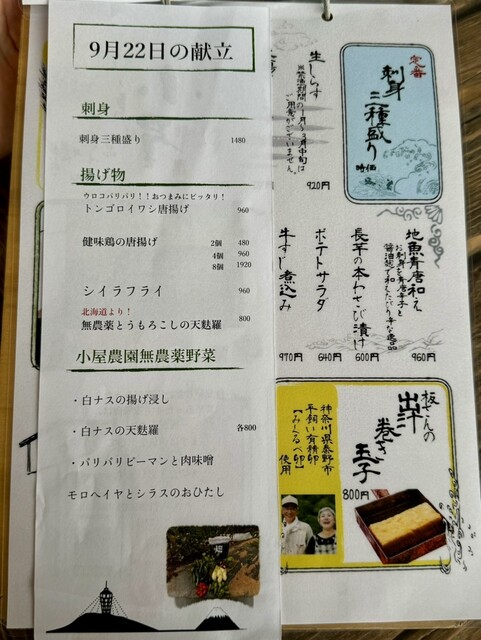 9月22日の献立
刺身
刺身三種盛り 1480
揚げ物
ウロコパリパリ！！おつまみにピッタリ！
トンゴロイワシ唐揚げ 960
健味鶏の唐揚げ 2個 480
4個 960
8個 1920
シイラフライ 960
北海道より！
無農薬とうもろこしの天麩羅 800
小屋農園無農薬野菜
・白ナスの揚げ浸し
・白ナスの天麩羅 各800
・パリパリピーマンと肉味噌
モロヘイヤとシラスのおひたし
定番
刺身
三種盛り
時価
生しらす
※禁漁期間の1月〜3月中旬は
ご用意がございません。
920円
地魚青唐和え
お刺身を青唐辛子と
醤油麹で和えたピリ辛な逸品
960円
長芋の本わさび漬け
600円
ポテトサラダ
640円
牛すじ煮込み
970円
板さんの
出汁
巻き
玉子
800円
神奈川県秦野市
平飼い有精卵
【みーくるべ卵】
使用